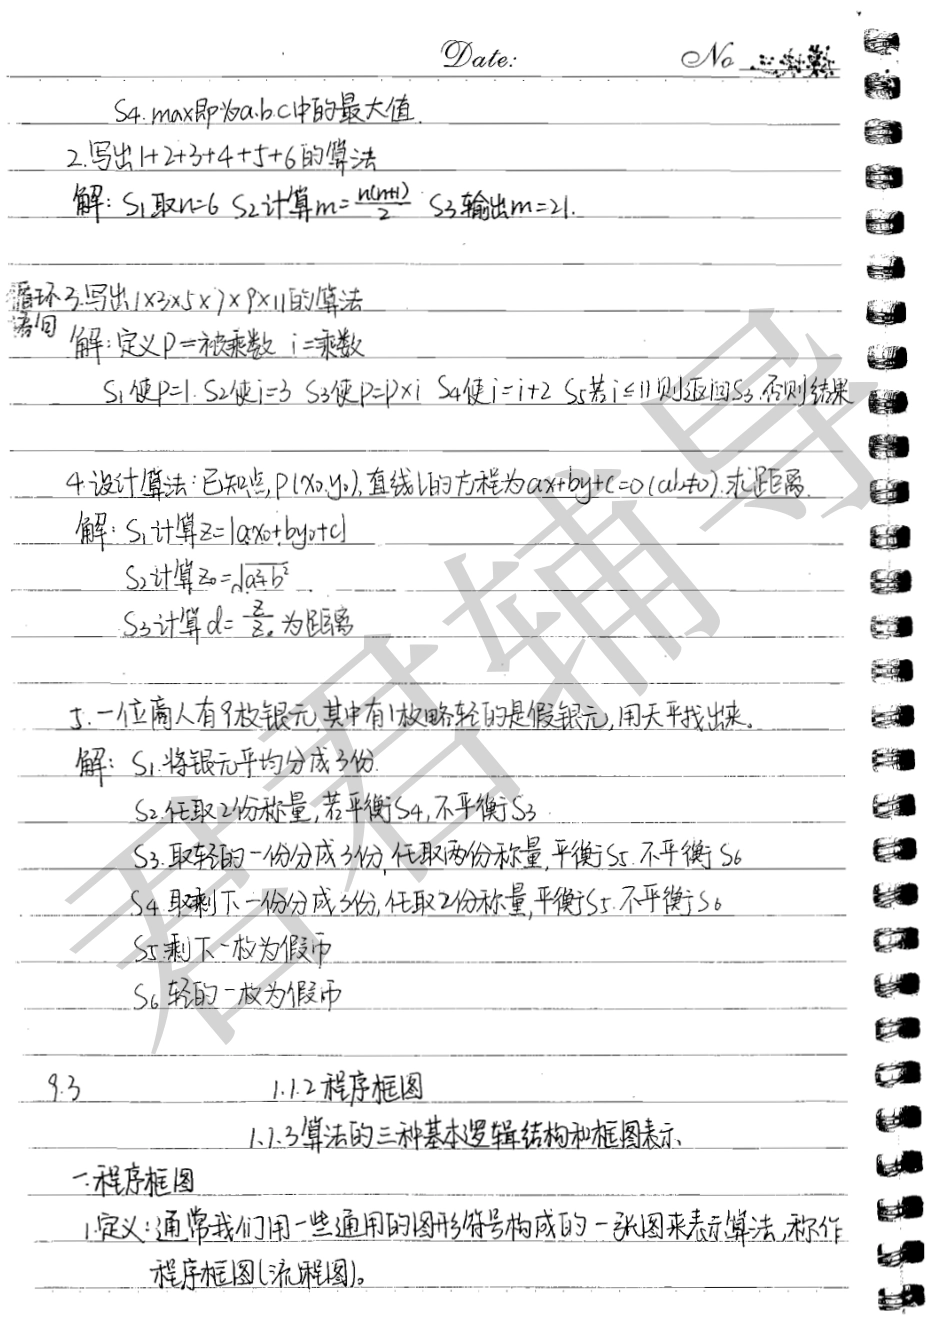 Date: No
S4. max即为a.b.c中的最大值.
2.写出1+2+3+4+5+6的算法
解: S1取n=6 S2计算m=n(n+1)/2 S3输出m=21.
循环 3.写出1×3×5×7×9×11的算法
语句 解:定义P=被乘数 i=乘数
S1使P=1. S2使i=3 S3使P=P×i S4使i=i+2 S5若i≤11则返回S3.否则结果
4.设计算法:已知点P(x0,y0),直线l的方程为ax+by+c=0(ab≠0).求距离.
解: S1计算z=|ax0+by0+c|
S2计算z0=√a²+b²
S3计算d=z/z0为距离
5.一位商人有9枚银元,其中有1枚略轻的是假银元,用天平找出来。
解: S1.将银元平均分成3份.
S2.任取2份称量,若平衡S4,不平衡S3
S3.取轻的一份分成3份,任取两份称量,平衡S5.不平衡S6
S4.取剩下一份分成3份,任取2份称量,平衡S5.不平衡S6
S5.剩下一枚为假币
S6轻的一枚为假币
9.3 1.1.2程序框图
1.1.3算法的三种基本逻辑结构和框图表示
一.程序框图
1.定义:通常我们用一些通用的图形符号构成的一张图来表示算法,称作
程序框图(流程图)。
君君辅导